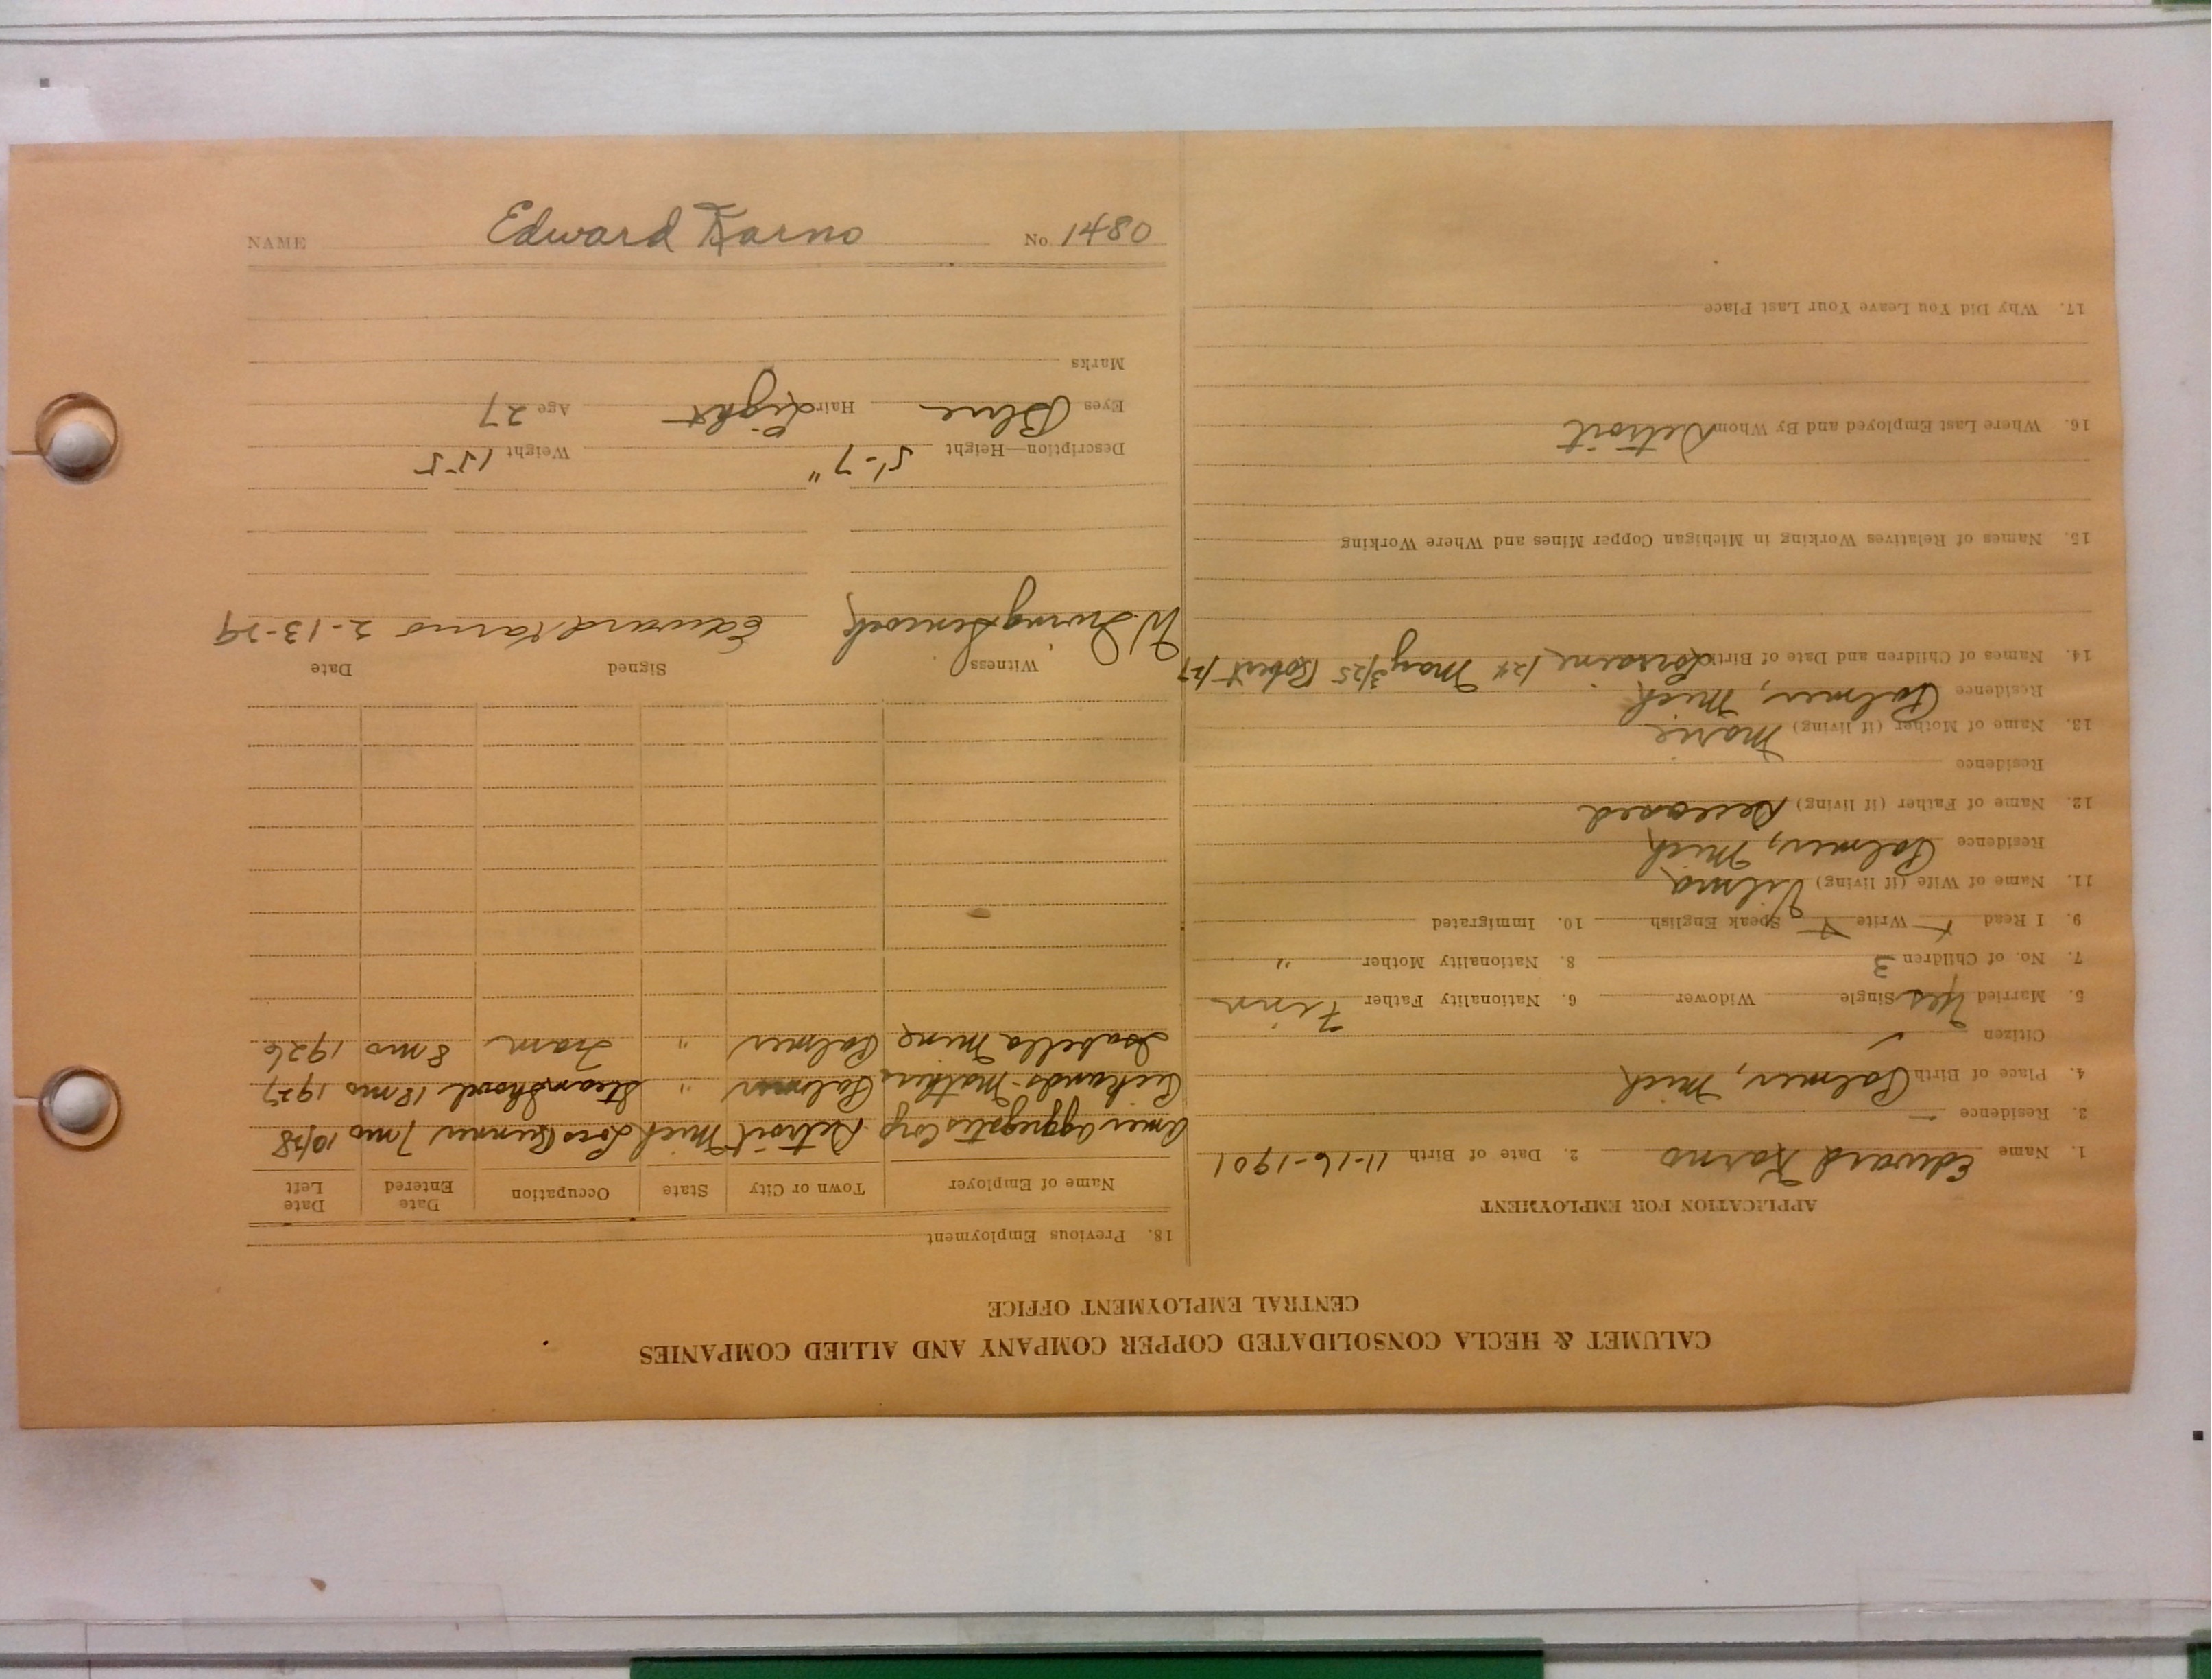 CALUMET & HECLA CONSOLIDATED COPPER COMPANY AND ALLIED COMPANIES
CENTRAL EMPLOYMENT OFFICE
APPLICATION FOR EMPLOYMENT
1. Name Edward Karno 2. Date of Birth 11-16-1901
3. Residence
4. Place of Birth Palmer, Mich
Citizen ✓
5. Married Yes Single Widower 6. Nationality Father Finn
7. No. of Children 3 8. Nationality Mother "
9. I Read Write Speak English 10. Immigrated
11. Name of Wife (if living) Vilma
Residence Palmer, Mich
12. Name of Father (if living) Deceased
Residence
13. Name of Mother (if living) Marie
Residence Palmer, Mich
14. Names of Children and Date of Birth Lorraine /24 May 3/25 Robert /27
15. Names of Relatives Working in Michigan Copper Mines and Where Working
16. Where Last Employed and By Whom Detroit
17. Why Did You Leave Your Last Place
18. Previous Employment
Name of Employer Town or City State Occupation Date Entered Date Left
Amer Aggregates Corp Detroit Mich Loco Runner 7 mo 10/28
Pickands-Mather Palmer " Steam Shovel 18 mo 1927
Isabella Mine Palmer " Tram 8 mo 1926
Witness Signed Date
W. Irving Edward Karno 2-13-29
Description—Height 5'-7" Weight 155
Eyes Blue Hair Light Age 27
Marks
NAME Edward Karno No. 1480